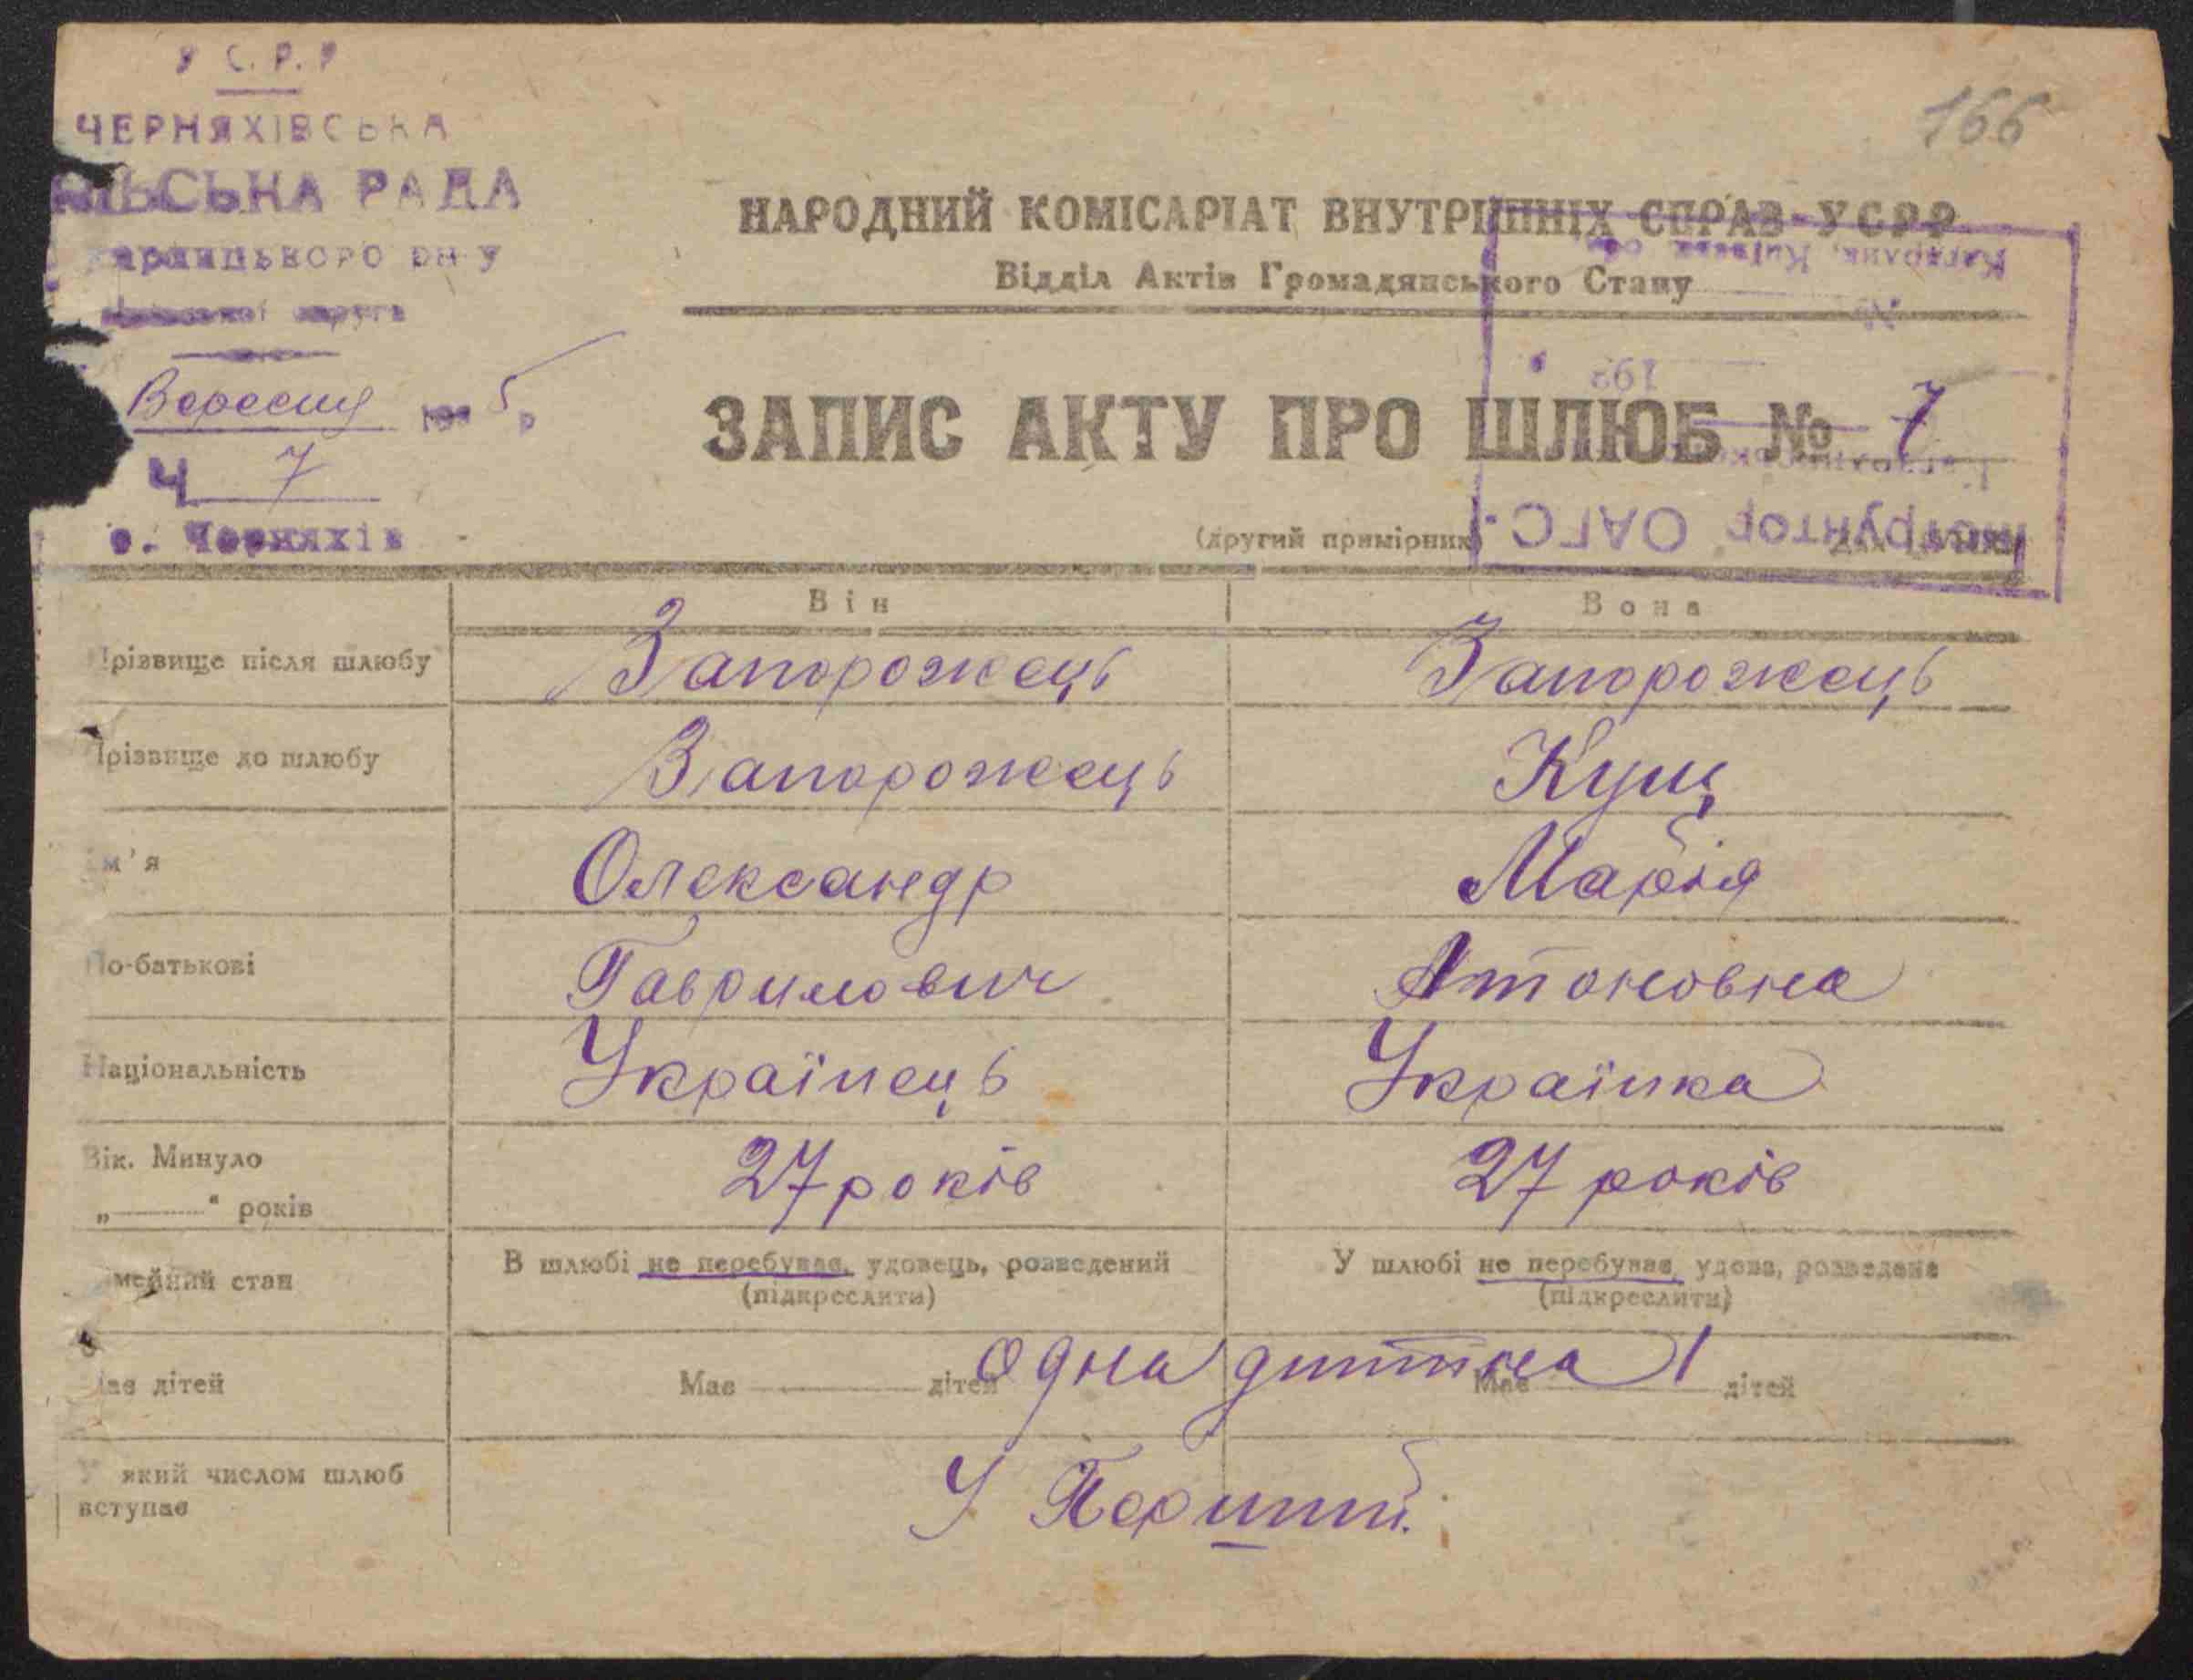 У С.Р.Р
166
ЧЕРНЯХІВСЬКА
СІЛЬСЬКА РАДА
Кагарлицького р-ну
округи
Вересня 193 5 р
Ч 7
с. Черняхів
НАРОДНИЙ КОМІСАРІАТ ВНУТРІШНІХ СПРАВ УСРР
Відділ Актів Громадянського Стану
Кагарлик, Київськ. обл.
№
193
ЗАПИС АКТУ ПРО ШЛЮБ № 7
Інструктор ОАГС.
(другий примірник)
Він Вона
Прізвище після шлюбу Запорожець Запорожець
Прізвище до шлюбу Запорожець Кущ
Ім'я Олександр Марія
По-батькові Гаврилович Антоновна
Національність Українець Українка
Вік. Минуло
„ “ років 27 років 27 років
мейний стан В шлюбі не перебував, удовець, розведений (підкреслити) У шлюбі не перебувала, удова, розведена (підкреслити)
Має дітей Має дітей одна дитина 1 Має дітей
У який числом шлюб вступає У Перший.